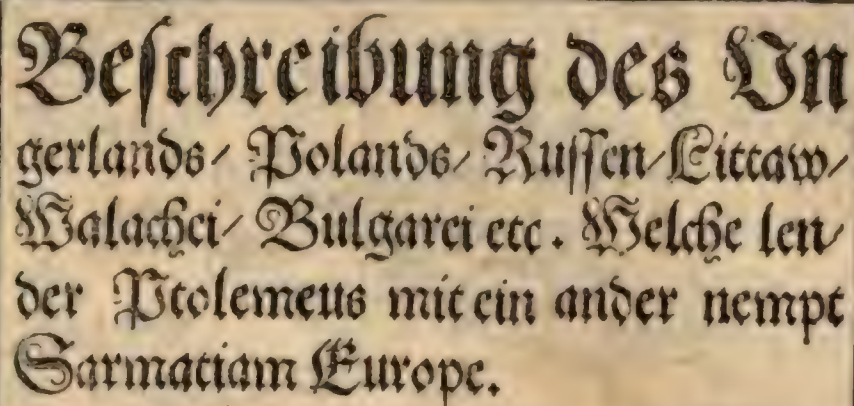 Beſchreibung des Vn
gerlands/ Polands/ Ruſſen/ Littaw/
Walachei/ Bulgarei etc. Welche len/
der Ptolemeus mit ein ander nempt
Sarmatiam Europe.